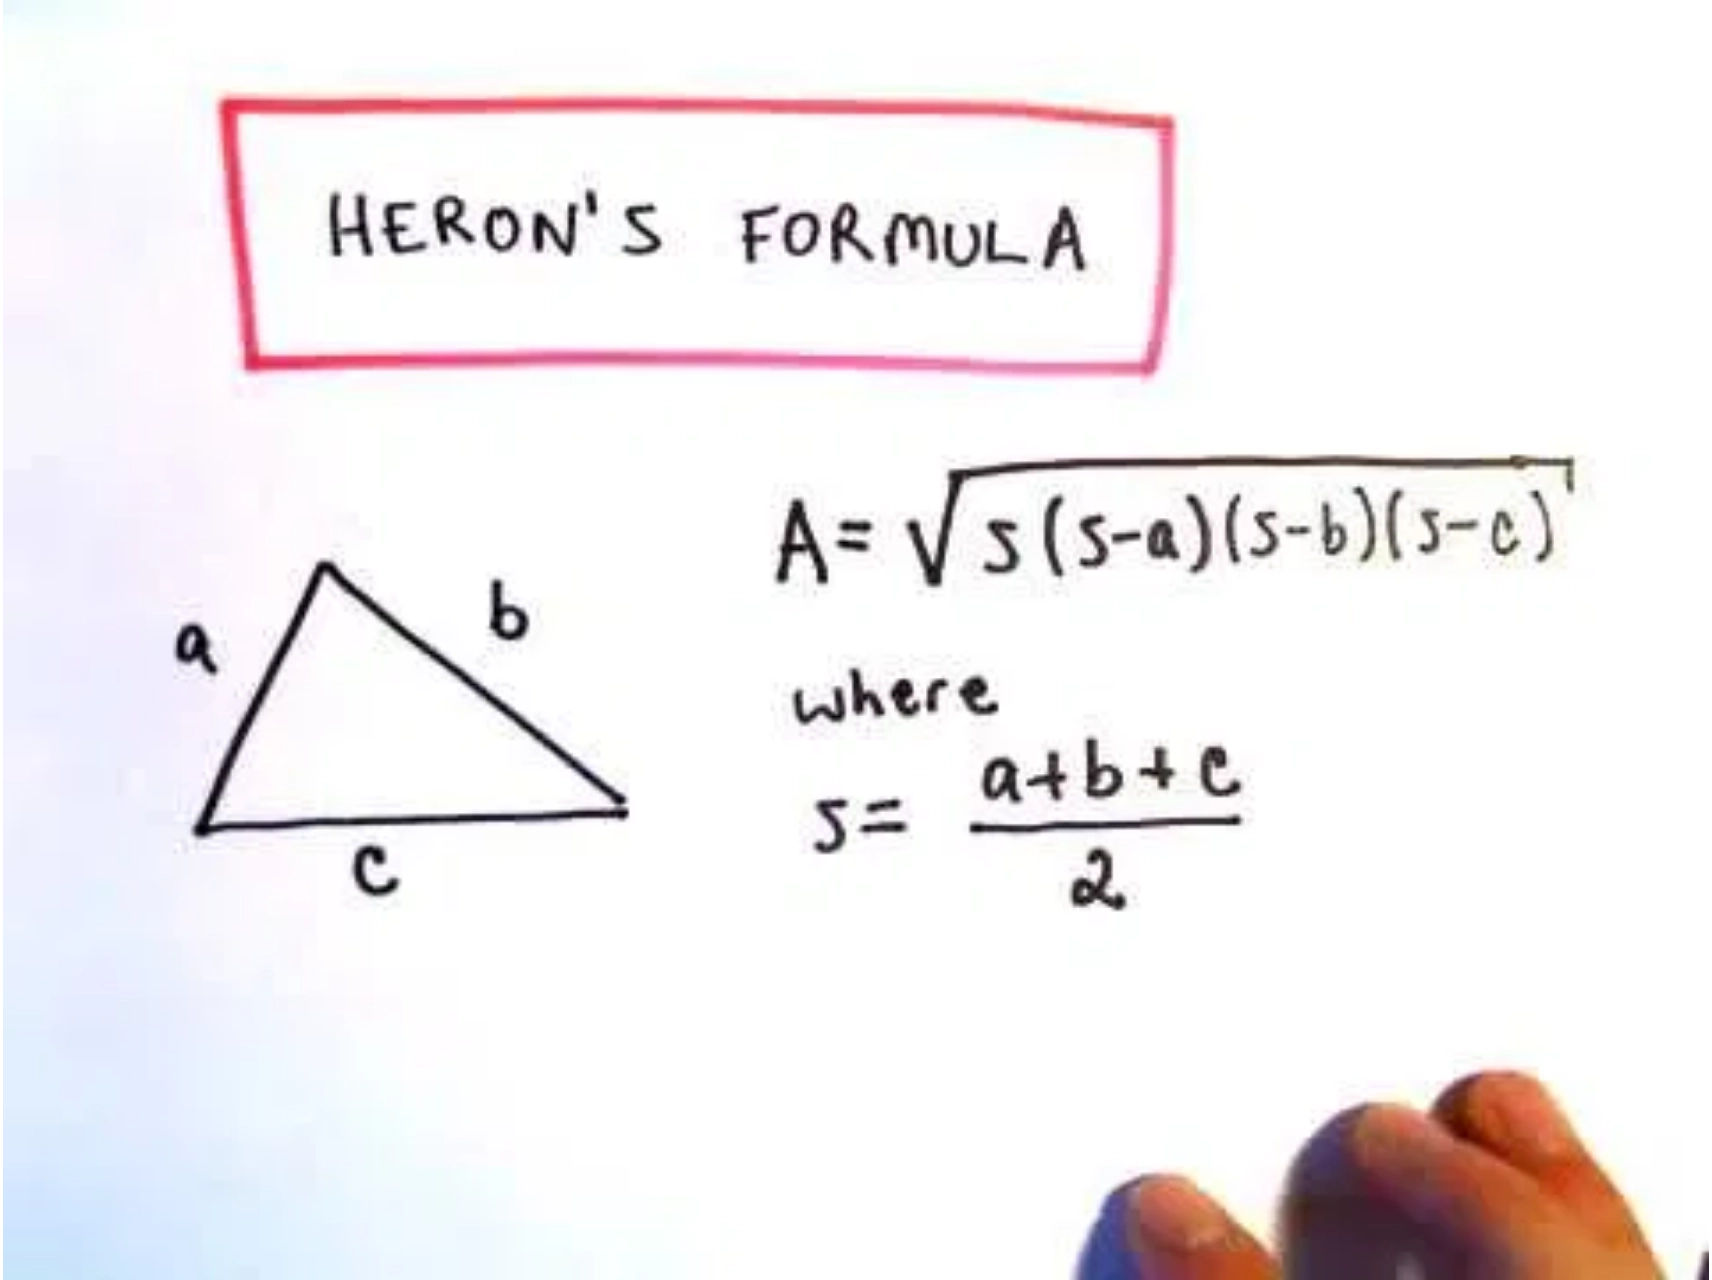 HERON'S FORMULA
A = √s(s-a)(s-b)(s-c)
a
b
c
where
s = a+b+c
2